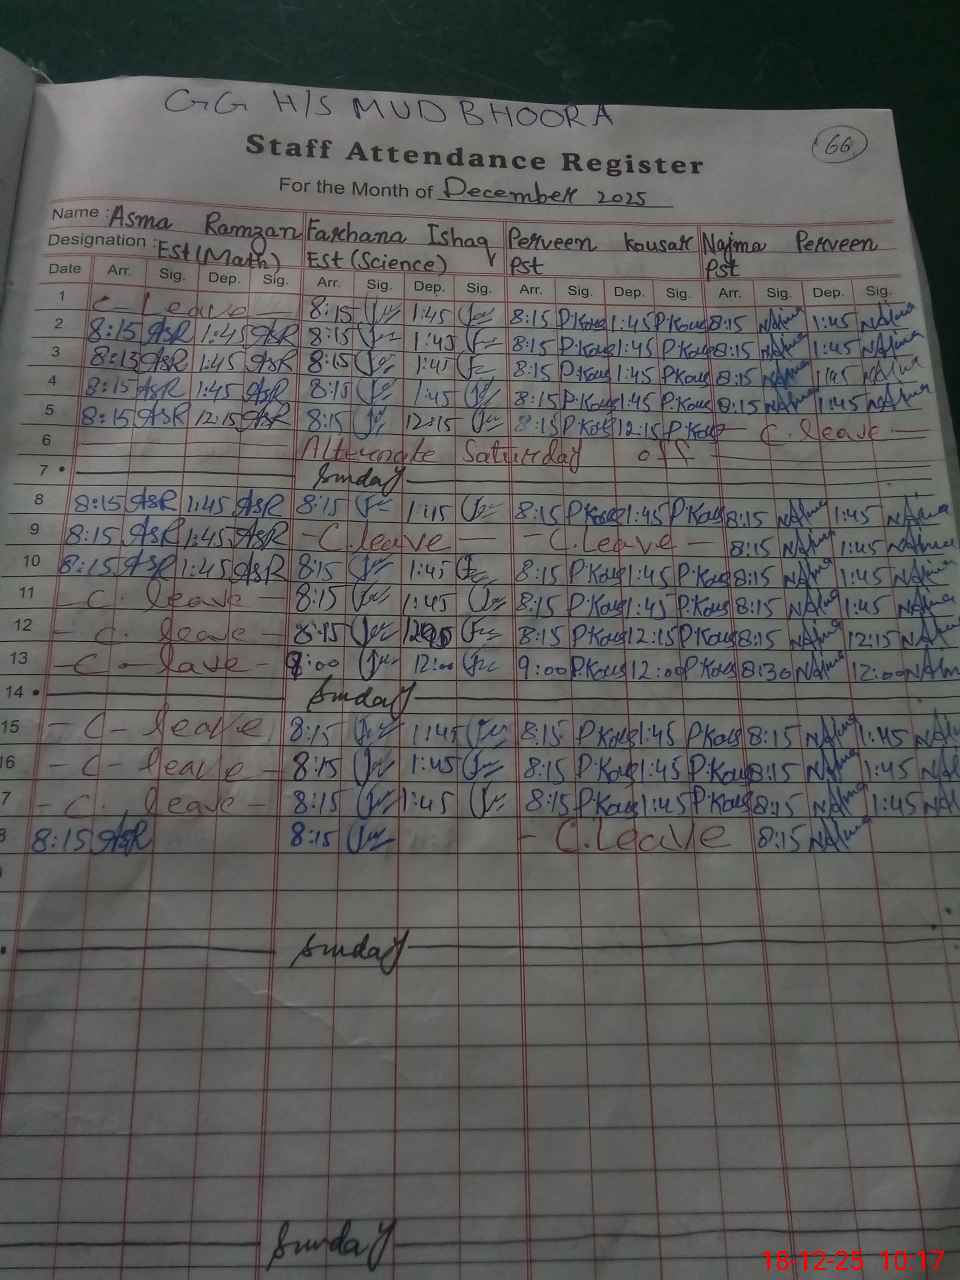 GG H/S MUD BHOORA
Staff Attendance Register
66
For the Month of December 2025
Name : Asma Ramzan Farhana Ishaq Perveen Kousar Najma Perveen
Designation : Est (Math) Est (Science) Pst Pst
Date Arr. Sig. Dep. Sig. Arr. Sig. Dep. Sig. Arr. Sig. Dep. Sig. Arr. Sig. Dep. Sig.
1 C-Leave 8:15 1:45 8:15 P.Kous 1:45 P.Kous 8:15 Najma 1:45 Najma
2 8:15 ASR 1:45 ASR 8:15 1:45 8:15 P.Kous 1:45 P.Kous 8:15 Najma 1:45 Najma
3 8:15 ASR 1:45 ASR 8:15 1:45 8:15 P.Kous 1:45 P.Kous 8:15 Najma 1:45 Najma
4 8:15 ASR 1:45 ASR 8:15 1:45 8:15 P.Kous 1:45 P.Kous 8:15 Najma 1:45 Najma
5 8:15 ASR 12:15 ASR 8:15 12:15 8:15 P.Kous 12:15 P.Kous - C. leave -
6 Alternate Saturday off
7 • Sunday
8 8:15 ASR 1:45 ASR 8:15 1:15 8:15 P.Kous 1:45 P.Kous 8:15 Najma 1:45 Najma
9 8:15 ASR 1:45 ASR - C. leave - - C. leave - 8:15 Najma 1:45 Najma
10 8:15 ASR 1:45 ASR 8:15 1:45 8:15 P.Kous 1:45 P.Kous 8:15 Najma 1:45 Najma
11 - C. leave - 8:15 1:45 8:15 P.Kous 1:45 P.Kous 8:15 Najma 1:45 Najma
12 - C. leave - 8:15 8:15 P.Kous 12:15 P.Kous 8:15 Najma 12:15 Najma
13 - C - lave - 9:00 12:00 9:00 P.Kous 12:00 P.Kous 8:30 Najma 12:00 Najm
14 • Sunday
15 - C- leave 8:15 1:45 8:15 P.Kous 1:45 P.Kous 8:15 Najma 1:45 Najm
16 - C- leave - 8:15 1:45 8:15 P.Kous 1:45 P.Kous 8:15 Najma 1:45 Na
7 - C. leave - 8:15 1:45 8:15 P.Kous 1:45 P.Kous 8:15 Najma 1:45 Na
8 8:15 ASR 8:15 - C. Leave 8:15 Najma
Sunday
Sunday
18-12-25 10:17